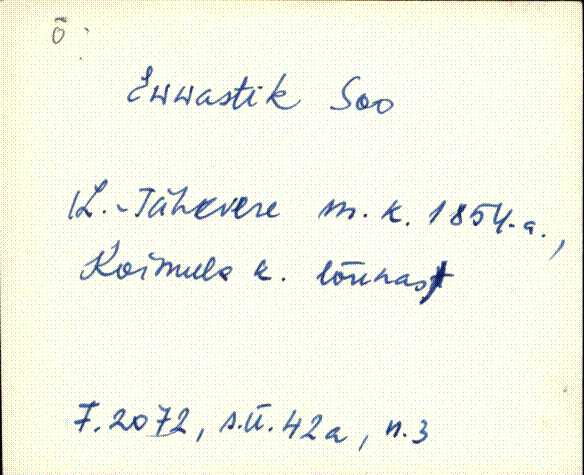 õ
Ewwastik Soo
KL.-Tähkvere m.k. 1854.a.,
Koimula k. lõunast
F.2072, s.ü.42a, n.3